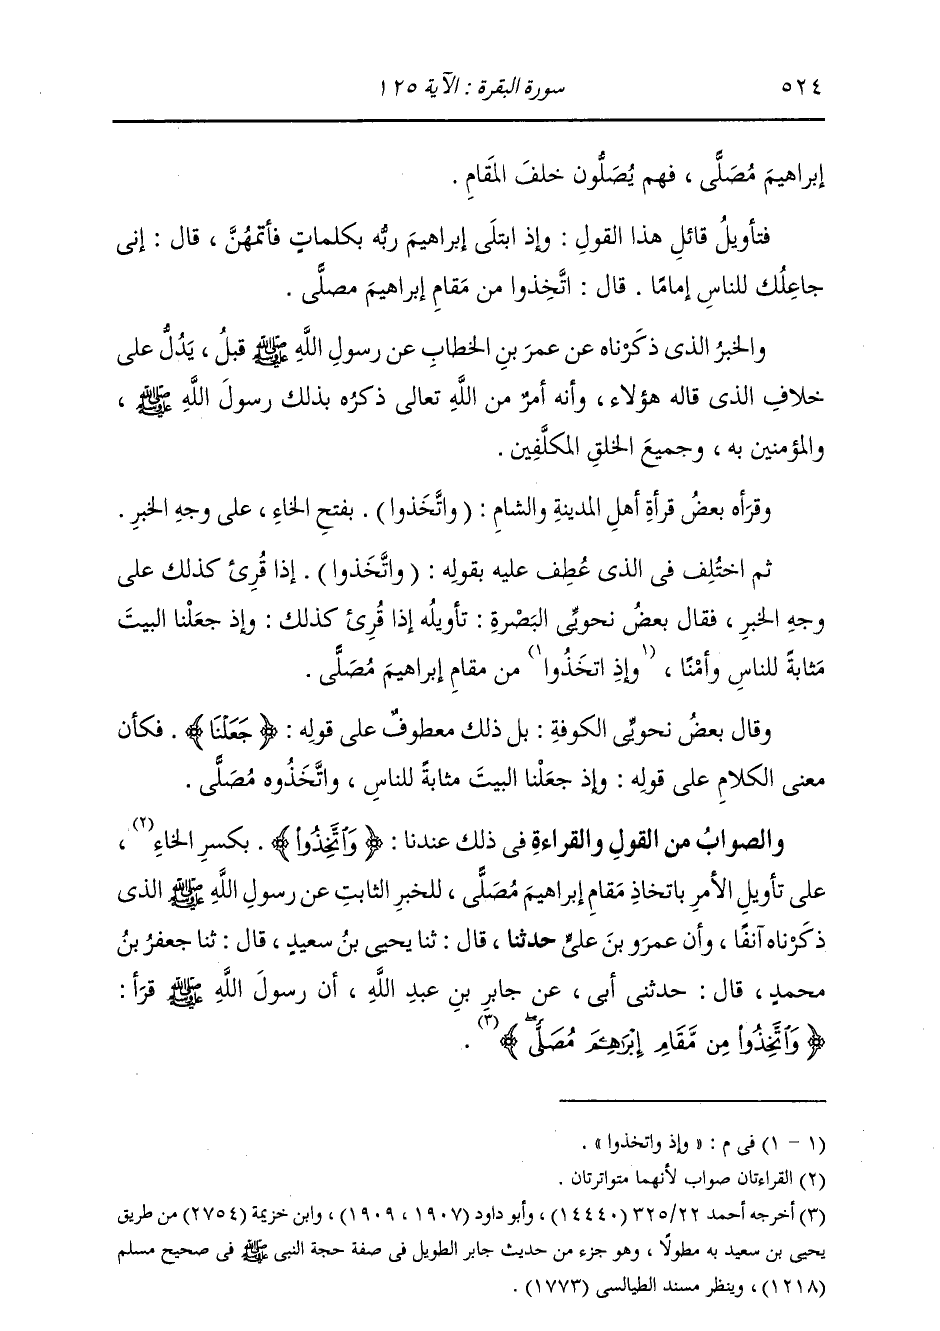 ٥٢٤ سورة البقرة : الآية ١٢٥
إبراهيمَ مُصَلًّى ، فهم يُصَلُّون خلفَ المَقامِ .
فتأويلُ قائلِ هذا القولِ : وإذ ابتلَى إبراهيمَ ربُّه بكلماتٍ فأتمهُنَّ ، قال : إنى
جاعِلُك للناسِ إمامًا . قال : اتَّخِذوا من مَقامِ إبراهيمَ مصلًّى .
والخبرُ الذى ذكَرْناه عن عمرَ بنِ الخطابِ عن رسولِ اللَّهِ ﷺ قبلُ ، يَدُلُّ على
خلافِ الذى قاله هؤلاء ، وأنه أمرٌ من اللَّهِ تعالى ذكرُه بذلك رسولَ اللَّهِ ﷺ ،
والمؤمنين به ، وجميعَ الخلقِ المكلَّفِين .
وقرَأه بعضُ قرأةِ أهلِ المدينةِ والشامِ : ( واتَّخَذوا ) . بفتحِ الخاءِ ، على وجهِ الخبرِ .
ثم اختُلِف فى الذى عُطِف عليه بقولِه : ( واتَّخَذوا ) . إذا قُرِئ كذلك على
وجهِ الخبرِ ، فقال بعضُ نحويِّى البَصْرةِ : تأويلُه إذا قُرِئ كذلك : وإذ جعَلْنا البيتَ
مَثابةً للناسِ وأمْنًا ، (١وإذِ اتخَذُوا١) من مقامِ إبراهيمَ مُصَلًّى .
وقال بعضُ نحويِّى الكوفةِ : بل ذلك معطوفٌ على قولِه : ﴿ جَعَلْنَا ﴾ . فكأن
معنى الكلامِ على قولِه : وإذ جعَلْنا البيتَ مثابةً للناسِ ، واتَّخَذُوه مُصَلًّى .
والصوابُ من القولِ والقراءةِ فى ذلك عندنا : ﴿ وَاَتَّخِذُواْ ﴾ . بكسرِ الخاءِ(٢) ،
على تأويلِ الأمرِ باتخاذِ مَقامِ إبراهيمَ مُصَلًّى ، للخبرِ الثابتِ عن رسولِ اللَّهِ ﷺ الذى
ذكَرْناه آنفًا ، وأن عمرَو بنَ علىٍّ حدثنا ، قال : ثنا يحيى بنُ سعيدٍ ، قال : ثنا جعفرُ بنُ
محمدٍ ، قال : حدثنى أبى ، عن جابرِ بنِ عبدِ اللَّهِ ، أن رسولَ اللَّهِ ﷺ قرَأ :
﴿ وَاَتَّخِذُواْ مِن مَّقَامِ إِبْرَٰهِـۧمَ مُصَلًّىۖ ﴾(٣) .
(١ - ١) فى م : « وإذ واتخذوا » .
(٢) القراءتان صواب لأنهما متواترتان .
(٣) أخرجه أحمد ٣٢٥/٢٢ (١٤٤٤٠) ، وأبو داود (١٩٠٧ ، ١٩٠٩) ، وابن خزيمة (٢٧٥٤) من طريق
يحيى بن سعيد به مطولًا ، وهو جزء من حديث جابر الطويل فى صفة حجة النبى ﷺ فى صحيح مسلم
(١٢١٨) ، وينظر مسند الطيالسى (١٧٧٣) .